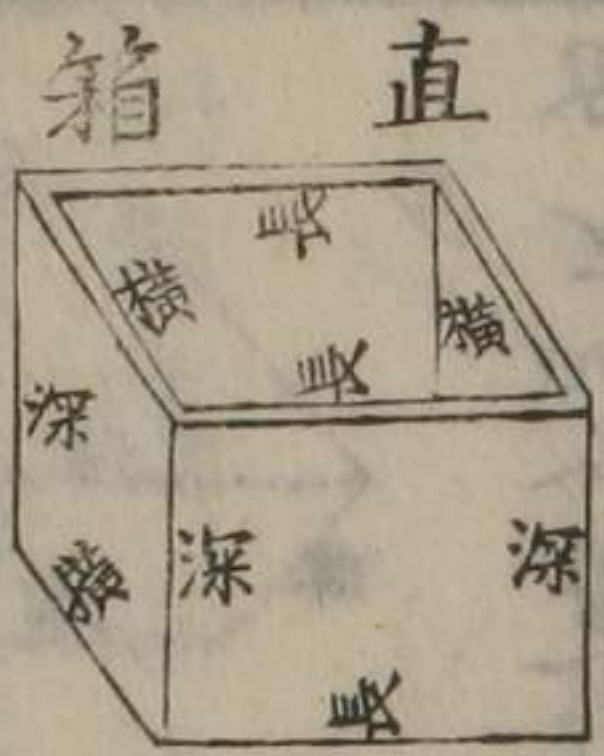 直箱
長
横
横
長
深
深
深
横
長